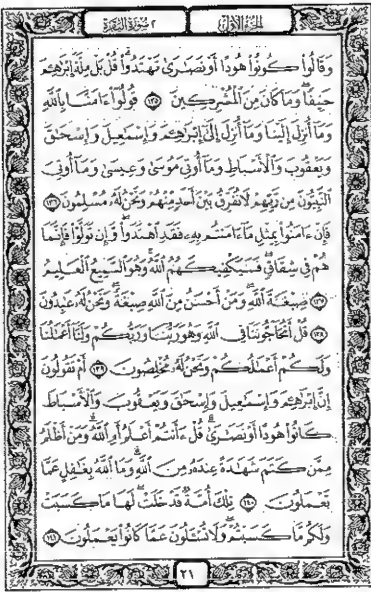 الجزء الأول
٢ سورة البقرة
وَقَالُوا۟ كُونُوا۟ هُودًا أَوْ نَصَـٰرَىٰ تَهْتَدُوا۟ۗ قُلْ بَلْ مِلَّةَ إِبْرَٰهِـۧمَ
حَنِيفًاۖ وَمَا كَانَ مِنَ ٱلْمُشْرِكِينَ ١٣٥ قُولُوٓا۟ ءَامَنَّا بِٱللَّهِ
وَمَآ أُنزِلَ إِلَيْنَا وَمَآ أُنزِلَ إِلَىٰٓ إِبْرَٰهِـۧمَ وَإِسْمَـٰعِيلَ وَإِسْحَـٰقَ
وَيَعْقُوبَ وَٱلْأَسْبَاطِ وَمَآ أُوتِىَ مُوسَىٰ وَعِيسَىٰ وَمَآ أُوتِىَ
ٱلنَّبِيُّونَ مِن رَّبِّهِمْ لَا نُفَرِّقُ بَيْنَ أَحَدٍ مِّنْهُمْ وَنَحْنُ لَهُۥ مُسْلِمُونَ ١٣٦
فَإِنْ ءَامَنُوا۟ بِمِثْلِ مَآ ءَامَنتُم بِهِۦ فَقَدِ ٱهْتَدَوا۟ۖ وَّإِن تَوَلَّوْا۟ فَإِنَّمَا
هُمْ فِى شِقَاقٍۖ فَسَيَكْفِيكَهُمُ ٱللَّهُۚ وَهُوَ ٱلسَّمِيعُ ٱلْعَلِيمُ
١٣٧ صِبْغَةَ ٱللَّهِۖ وَمَنْ أَحْسَنُ مِنَ ٱللَّهِ صِبْغَةًۖ وَنَحْنُ لَهُۥ عَـٰبِدُونَ
١٣٨ قُلْ أَتُحَآجُّونَنَا فِى ٱللَّهِ وَهُوَ رَبُّنَا وَرَبُّكُمْ وَلَنَآ أَعْمَـٰلُنَا
وَلَكُمْ أَعْمَـٰلُكُمْ وَنَحْنُ لَهُۥ مُخْلِصُونَ ١٣٩ أَمْ تَقُولُونَ
إِنَّ إِبْرَٰهِـۧمَ وَإِسْمَـٰعِيلَ وَإِسْحَـٰقَ وَيَعْقُوبَ وَٱلْأَسْبَاطَ
كَانُوا۟ هُودًا أَوْ نَصَـٰرَىٰۗ قُلْ ءَأَنتُمْ أَعْلَمُ أَمِ ٱللَّهُۗ وَمَنْ أَظْلَمُ
مِمَّن كَتَمَ شَهَـٰدَةً عِندَهُۥ مِنَ ٱللَّهِۗ وَمَا ٱللَّهُ بِغَـٰفِلٍ عَمَّا
تَعْمَلُونَ ١٤٠ تِلْكَ أُمَّةٌ قَدْ خَلَتْۖ لَهَا مَا كَسَبَتْ
وَلَكُم مَّا كَسَبْتُمْۖ وَلَا تُسْـَٔلُونَ عَمَّا كَانُوا۟ يَعْمَلُونَ ١٤١
٢١